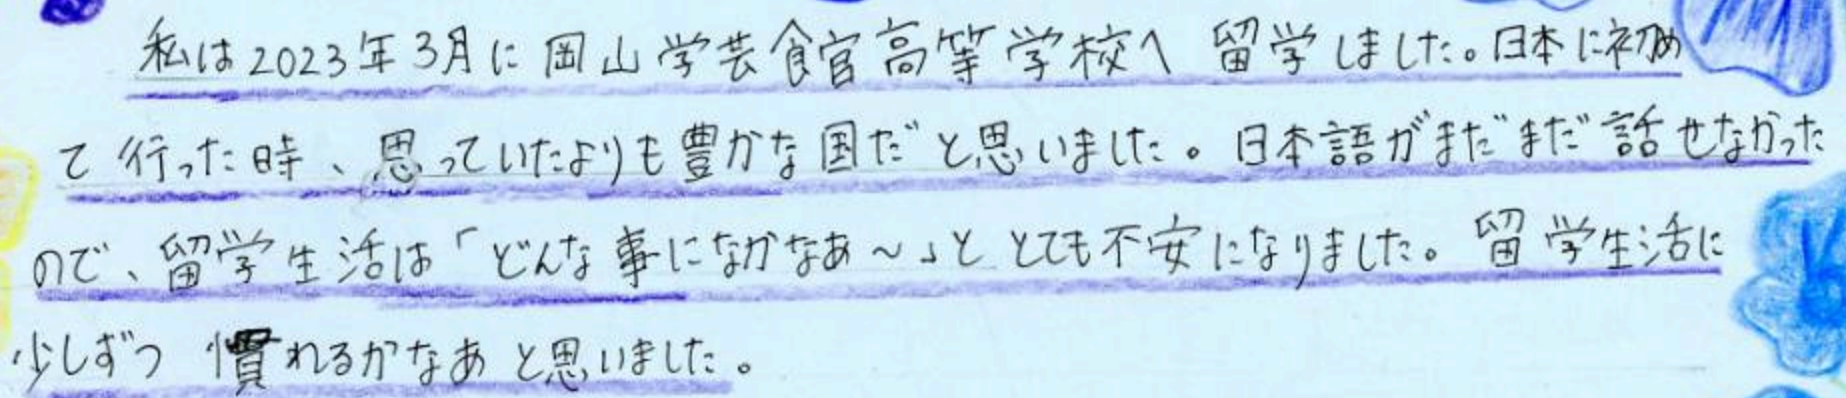 私は2023年3月に岡山学芸館高等学校へ 留学しました。日本に初め
て行った時、思っていたよりも豊かな国だと思いました。日本語がまだまだ話せなかった
ので、留学生活は「どんな事になかなあ～」ととても不安になりました。留学生活に
少しずつ 慣れるかなあと思いました。